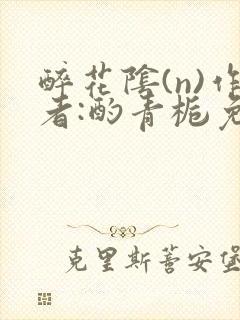 醉花陰(n)作
者:酌青栀免
克里斯蒂安堡